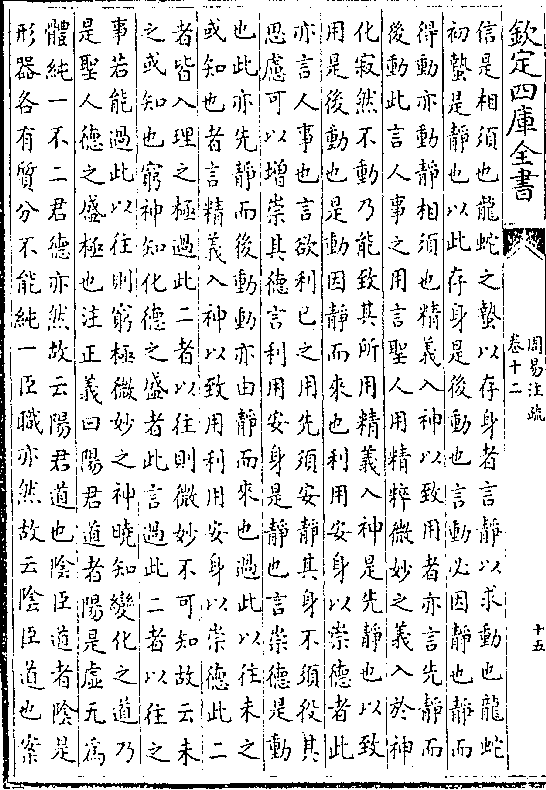 欽定四庫全書
周易注疏
卷十二
十五
信是相須也龍蛇之蟄以存身者言靜以求動也龍蛇
初蟄是靜也以此存身是後動也言動必因靜也靜而
得動亦動靜相須也精義入神以致用者亦言先靜而
後動此言人事之用言聖人用精粹微妙之義入於神
化寂然不動乃能致其所用精義入神是先靜也以致
用是後動也是動因靜而來也利用安身以崇德者此
亦言人事也言欲利己之用先須安靜其身不須役其
思慮可以增崇其德言利用安身是靜也言崇德是動
也此亦先靜而後動動亦由靜而來也過此以往未之
或知也者言精義入神以致用利用安身以崇德此二
者皆入理之極過此二者以往則微妙不可知故云未
之或知也窮神知化德之盛者此言過此二者以往之
事若能過此以往則窮極微妙之神曉知變化之道乃
是聖人德之盛極也注正義曰陽君道者陽是虛无爲
體純一不二君德亦然故云陽君道也陰臣道者陰是
形器各有質分不能純一臣職亦然故云陰臣道也案